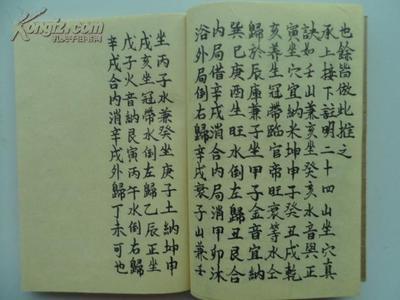 也餘皆倣此推之
承上接下註明二十四山坐穴真
訣如壬山兼亥坐癸亥水音與正
寅坐穴宜納米坤申子癸丑戌乾
亥養生冠帶臨官帝旺衰等水仝
歸於辰庫兼子坐甲子金音宜納
巽巳庚酉生旺水倒左歸丑艮合
內局借辛戌消合內局消甲卯沐
浴外局倒右歸辛戌衰子山兼壬
坐丙子水兼癸坐庚子土納坤申
戌亥坐冠帶水倒左歸乙辰正坐
戊子火音納艮寅丙午水倒右歸
辛戌合內消辛戌外歸丁未可也